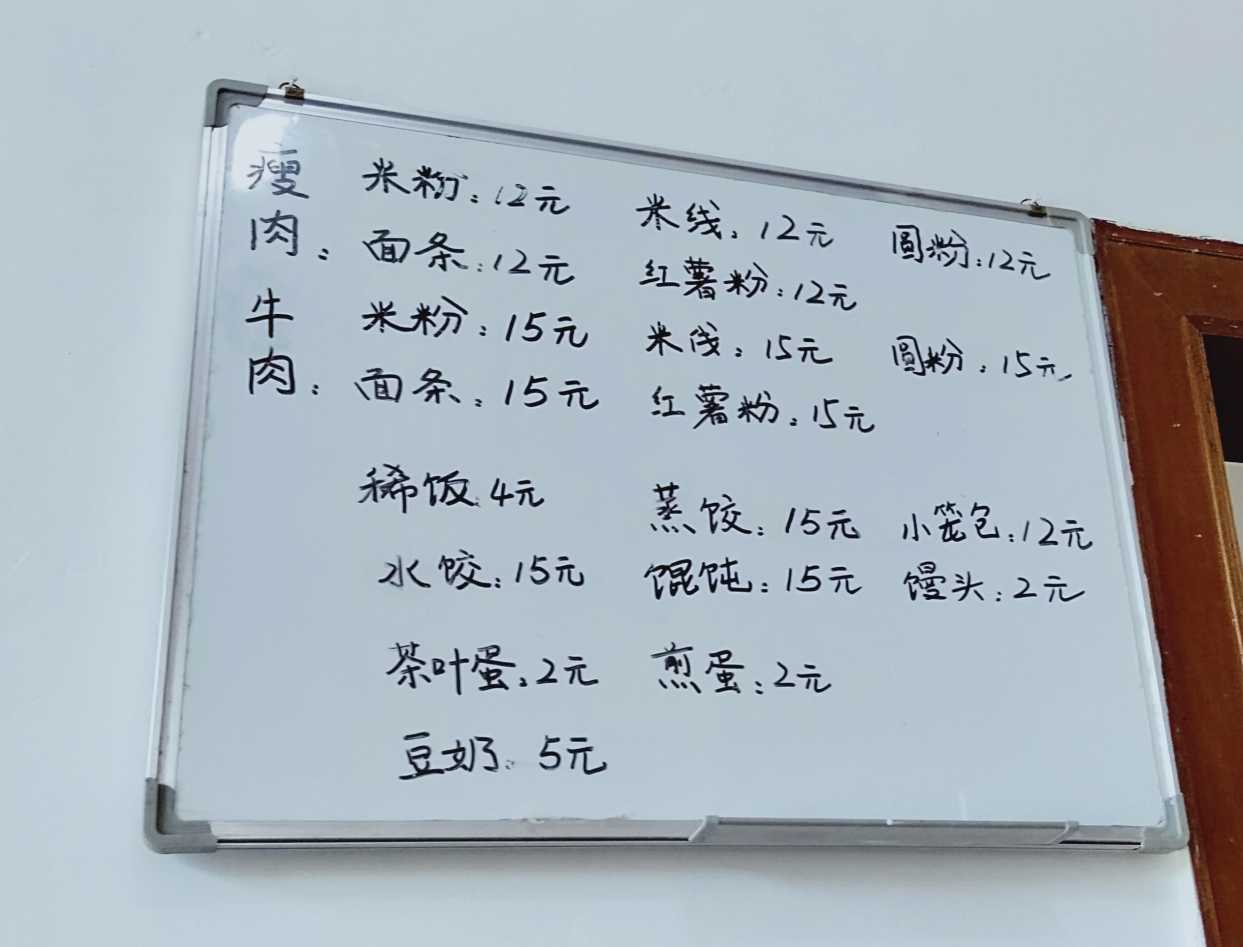 瘦肉: 米粉:12元 米线:12元 圆粉:12元
面条:12元 红薯粉:12元
牛肉: 米粉:15元 米线:15元 圆粉:15元
面条:15元 红薯粉:15元
稀饭:4元 蒸饺:15元 小笼包:12元
水饺:15元 馄饨:15元 馒头:2元
茶叶蛋:2元 煎蛋:2元
豆奶:5元